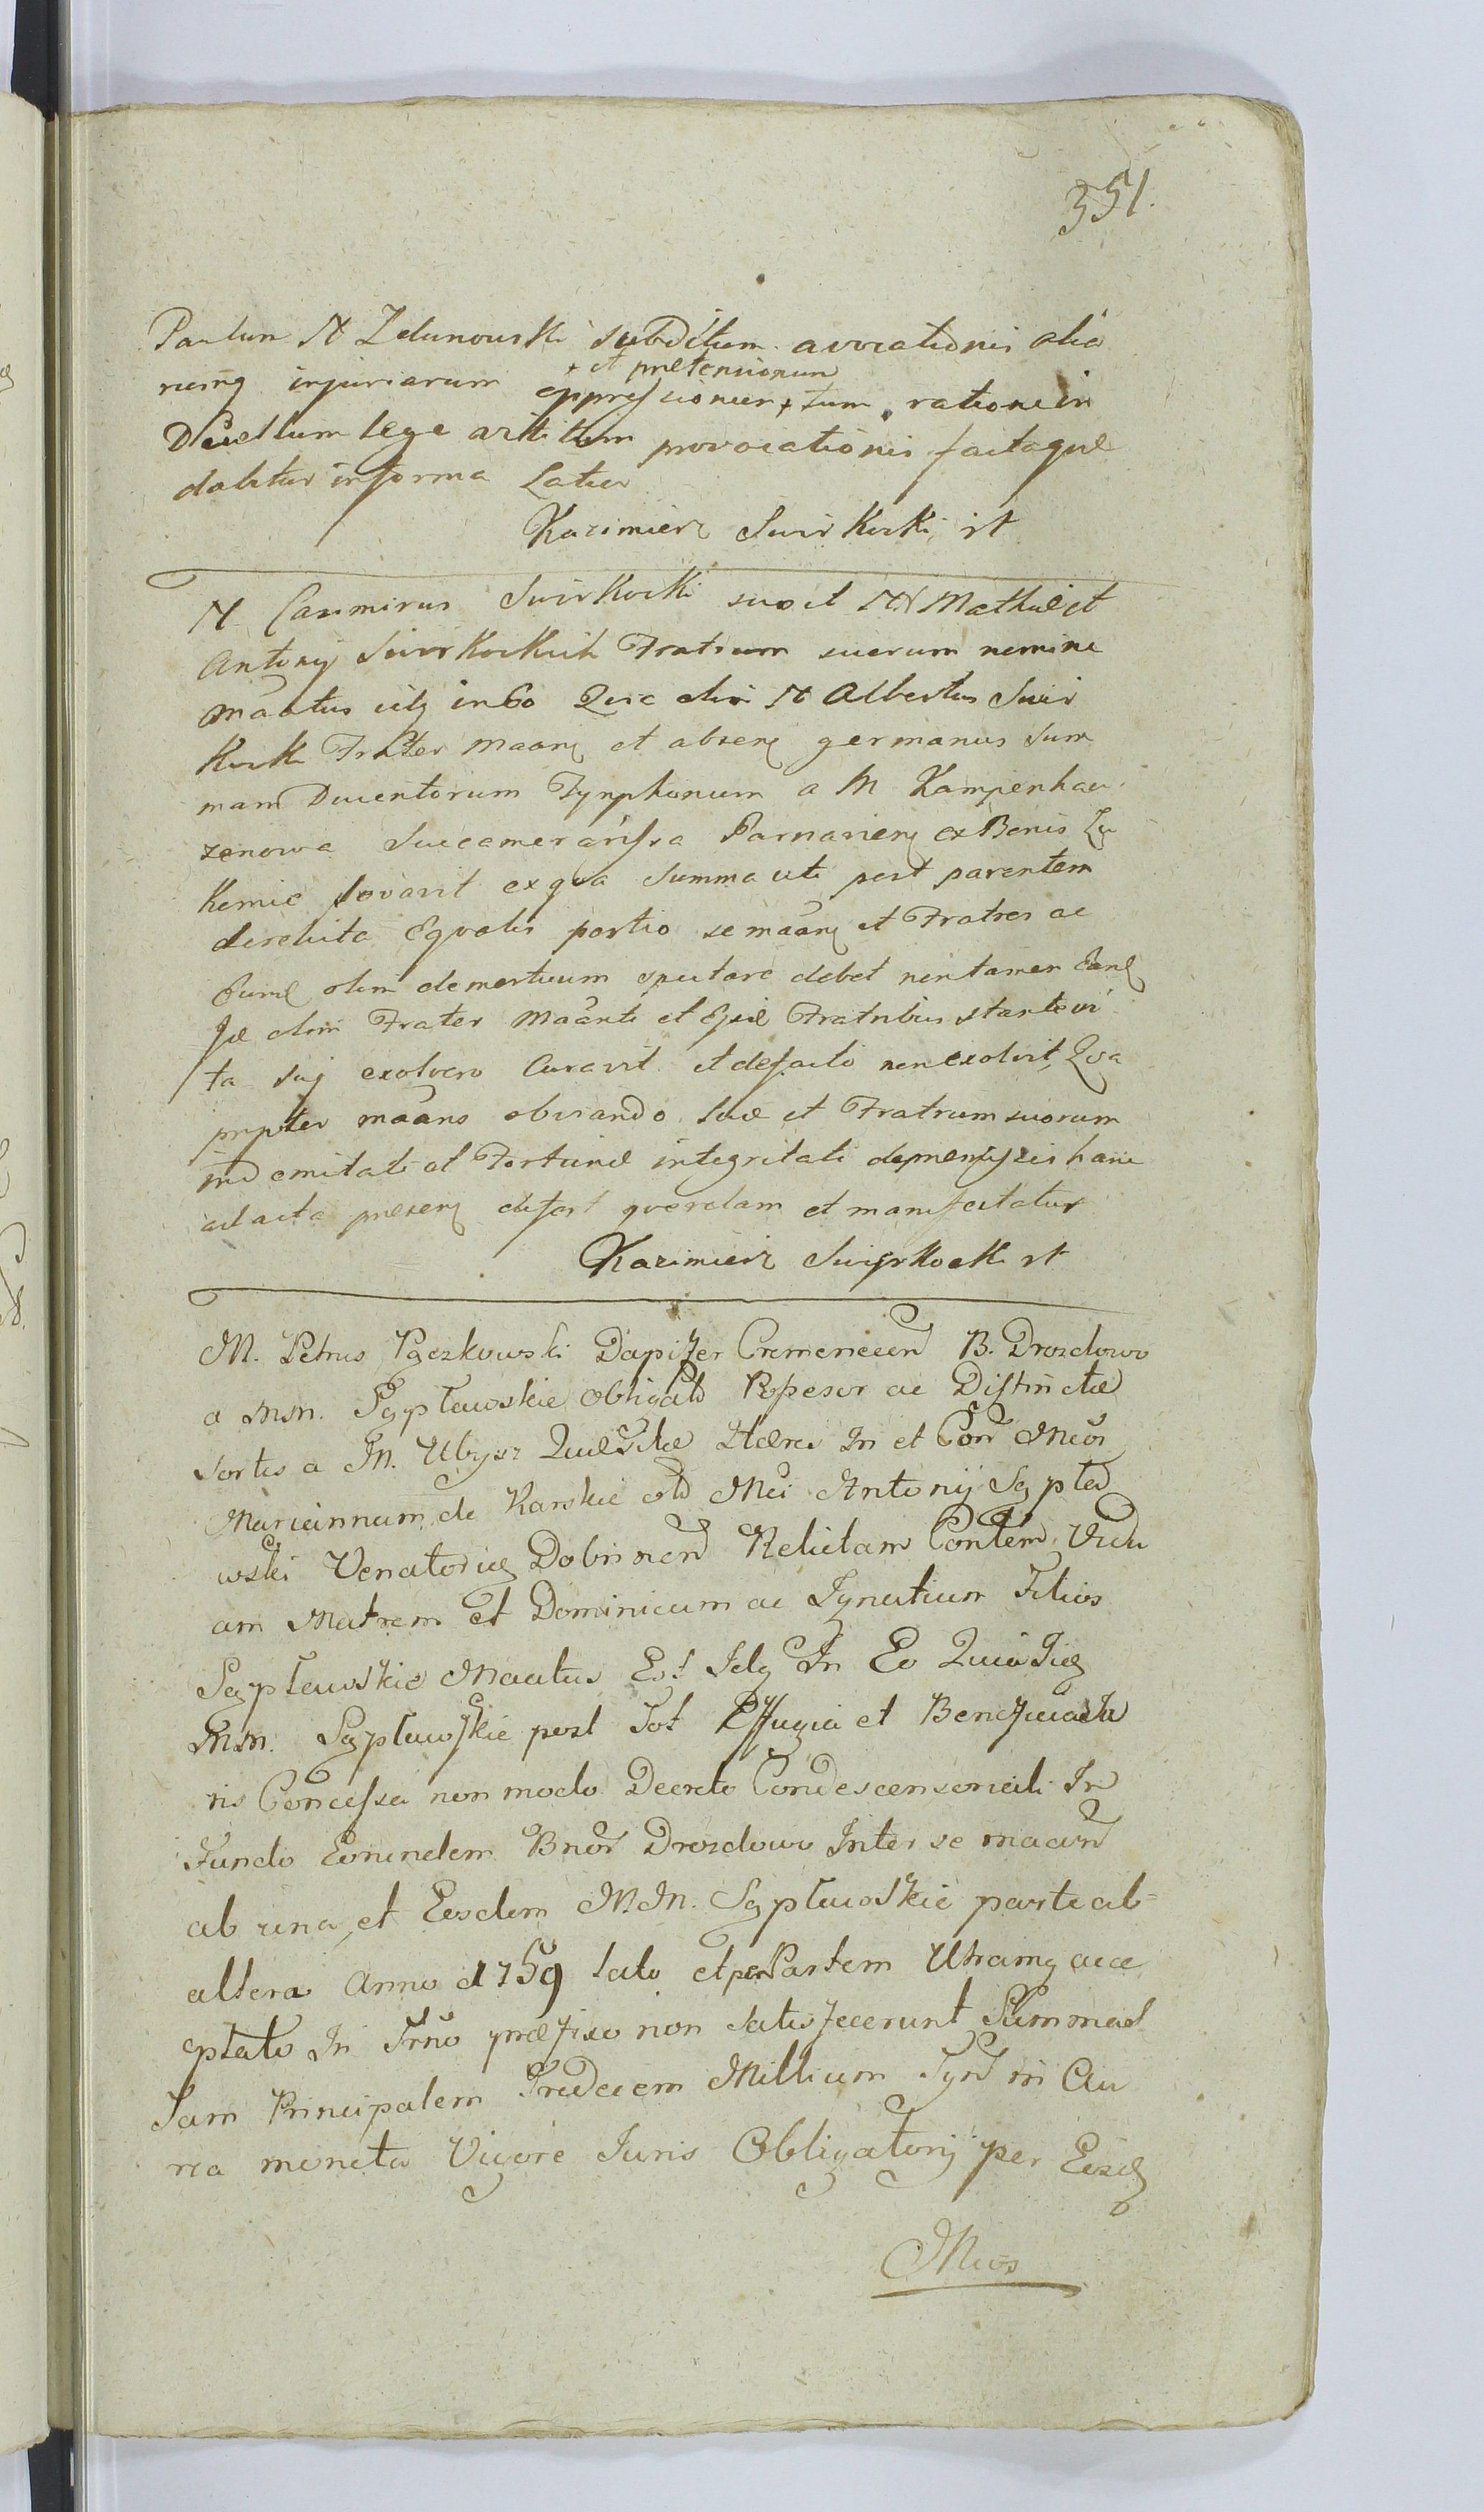 351.
Paulum N Zelunowski subditum avocationis alia
rumq injuriarum oppressionum + tum rationem
+ et prætensionum
Duellum lege provocationis factaque
dabitur in forma Latiu
Kazimierz Swirkocki
N Casimirus Swirkocki suo et NN Mathiæ et
Antonij Swirkockich Fratrum suorum nomine
maatus in Eo Quia olim N Albertus Swir
kocki Frater maanq et absenq germanus Sum
mam Ducentorum Tynphonum a M Kampenhau
zenowa Succamerarissa Parnavienq ex Bonis Lu
kemie levavit ex qva Summa uti post parentem
derelicta Eqvalis portio se maanq et Fratres ac
Eund olim demortuum spectare debet non tamen Eand
Jd olim Frater Maanti et Ejus Fratribus stante vi
ta suj exolvere Curavit et de facto non exolvit, Qva
propter maans obviando suæ et Fratrum suorum
indemnitati et Fortunæ integritati de præmissis hanc
ad acta præsenq defert qverelam et manifestatur
Kazimierz Swirkocki
M. Petrus Pączkowski Dapifer Cremenecen B. Drozdowo
a MM. Sąpławskie obligato Possesor ac Distinctæ
Sortis a M. Ubysz Quæsitæ Hæres In et Con Meos
Mariannam de Karskie old Mci Antonij Sąpła
wski Venatoris Dobrinen Relictam Contem Vidu
am Matrem et Dominicum ac Ignatium Filios
Sąpławskie Maatus Est Idq In Eo Quia Iidq
MM. Sąpławskie post Tot Effugia et Beneficia Ju
ris Concessa non modo Decreto Condescensoriali In
Fundo Eorundem Bnor Drozdowo Inter se maan
ab una, et Eosdem M.M. Sąpławskie parte ab
altera Anno 1759 lato et per Partem Utramq acce
ptato In Trno præfixo non satisfecerunt Summas
Tam Principalem Tredecem Millium Tyn in Cu
rra moneta Vigore Juris Obligatorij per Eosd
Meos